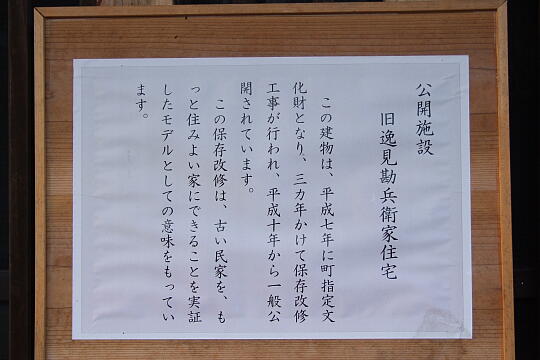 公開施設
旧逸見勘兵衛家住宅
この建物は、平成七年に町指定文
化財となり、三カ年かけて保存改修
工事が行われ、平成十年から一般公
開されています。
この保存改修は、古い民家を、も
っと住みよい家にできることを実証
したモデルとしての意味をもってい
ます。